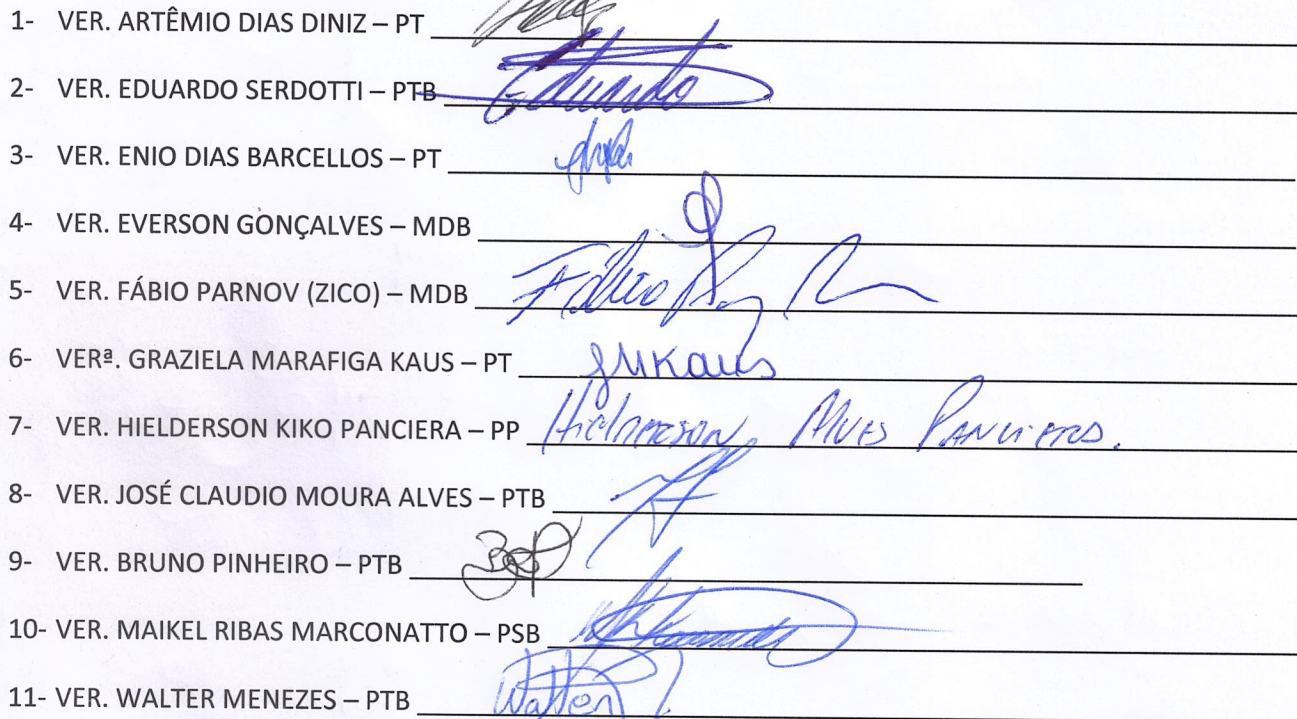 1- VER. ARTÊMIO DIAS DINIZ – PT
2- VER. EDUARDO SERDOTTI – PTB Eduardo
3- VER. ENIO DIAS BARCELLOS – PT
4- VER. EVERSON GONÇALVES – MDB
5- VER. FÁBIO PARNOV (ZICO) – MDB Fábio
6- VERª. GRAZIELA MARAFIGA KAUS – PT GMKaus
7- VER. HIELDERSON KIKO PANCIERA – PP Hielderson Alves Panciera.
8- VER. JOSÉ CLAUDIO MOURA ALVES – PTB
9- VER. BRUNO PINHEIRO – PTB
10- VER. MAIKEL RIBAS MARCONATTO – PSB
11- VER. WALTER MENEZES – PTB Walter